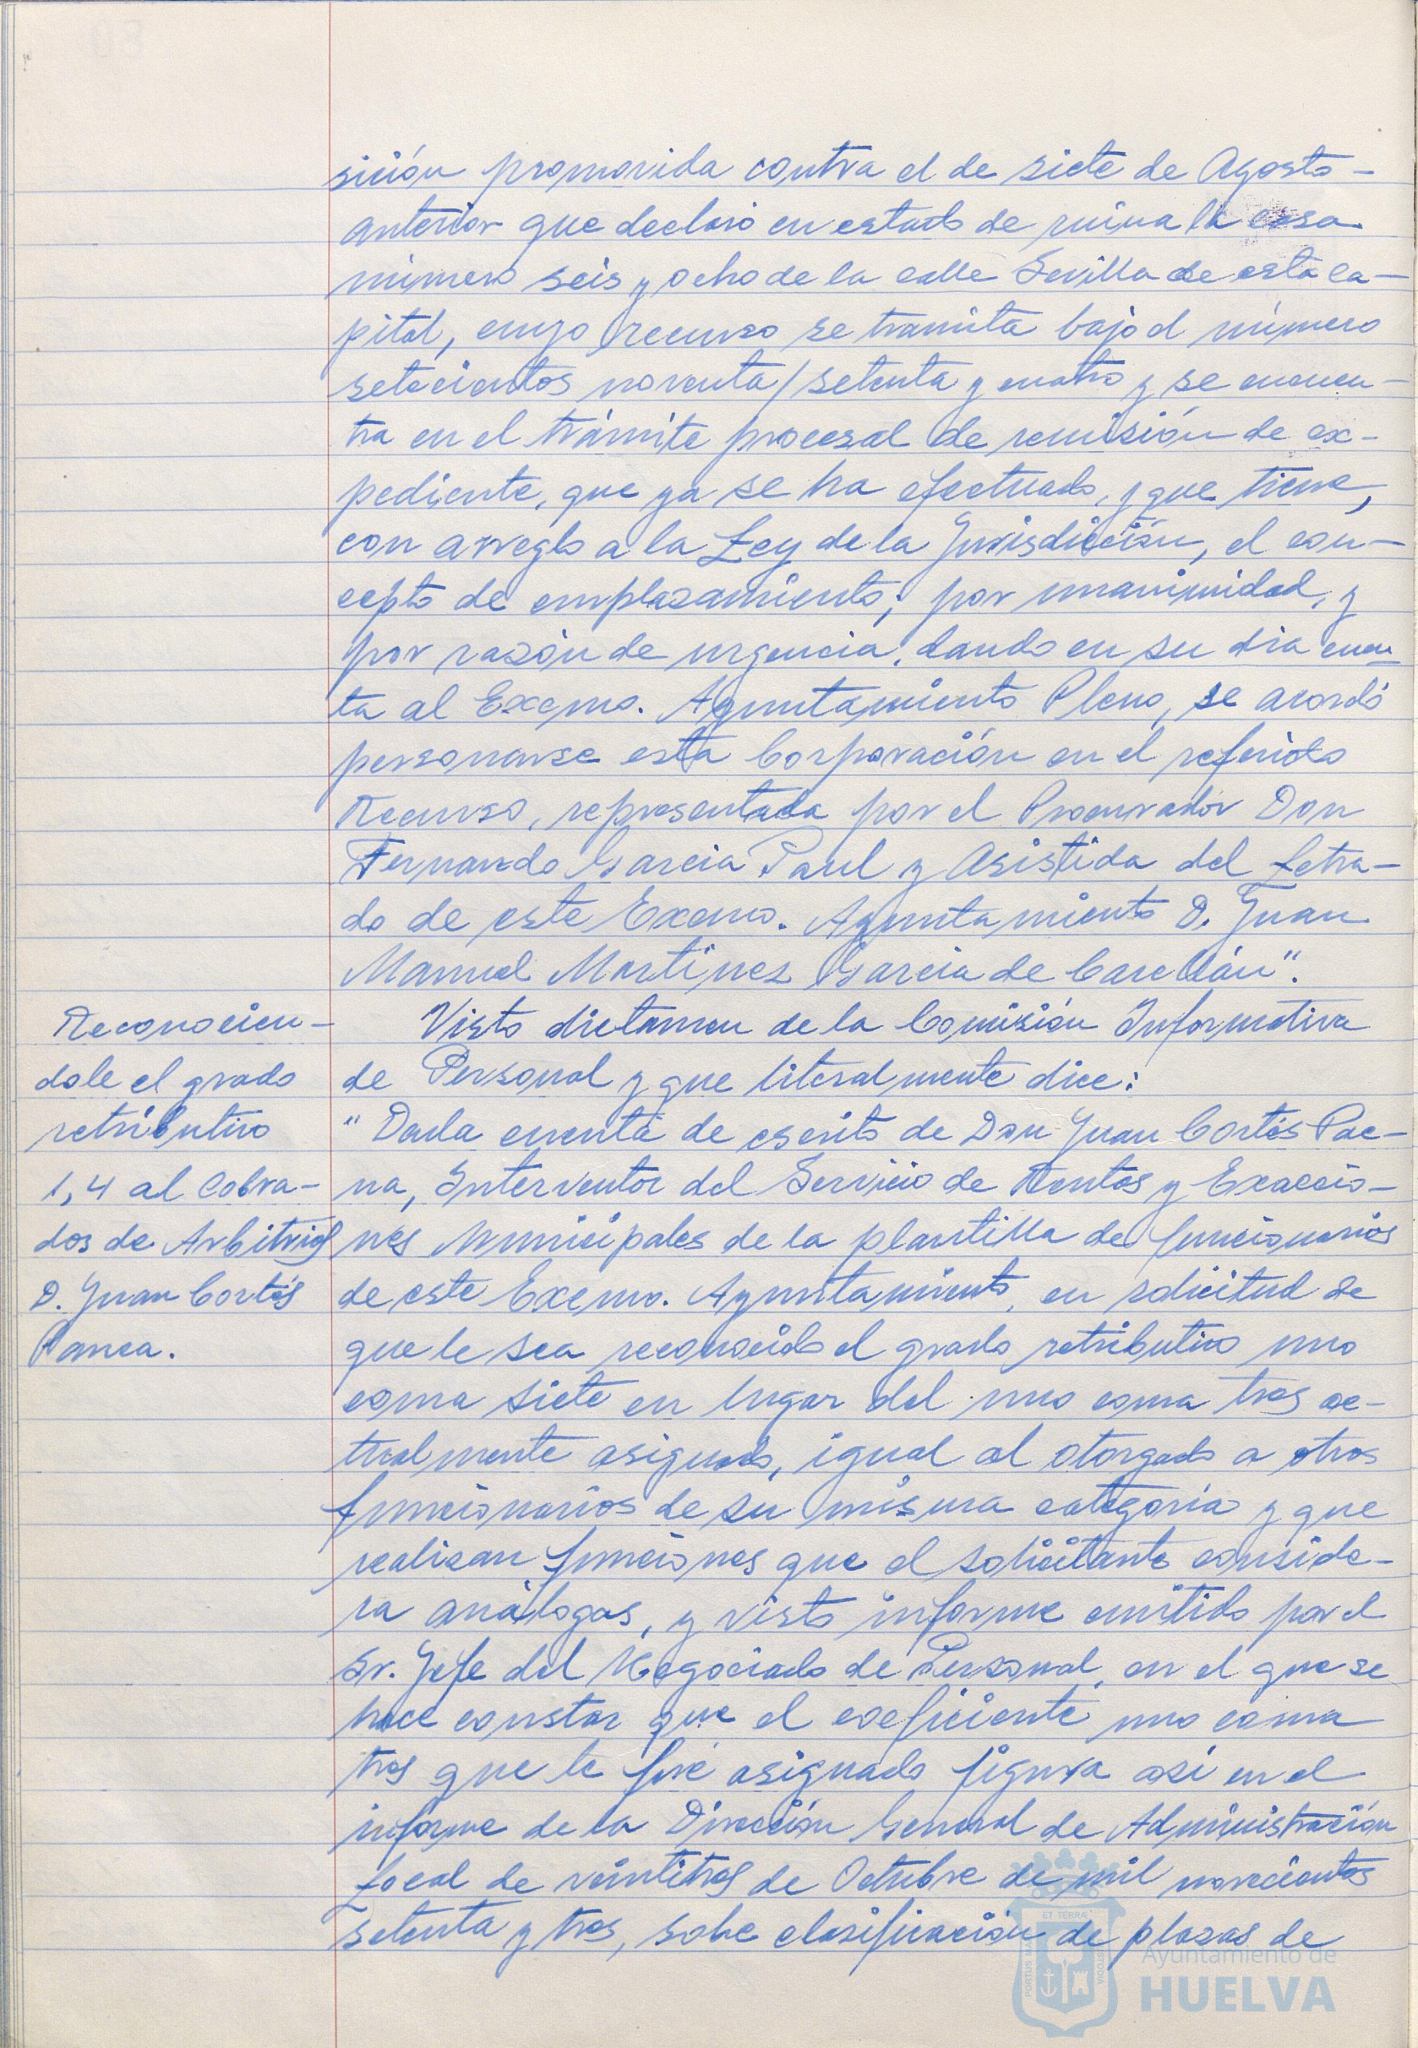 sición promovida contra el de siete de Agosto-
anterior que declaró en estado de ruina la casa
número seis y ocho de la calle Sevilla de esta ca-
pital, cuyo recurso se tramita bajo el número
setecientos noventa/setenta y cuatro y se encuen-
tra en el trámite procesal de remisión de ex-
pediente, que ya se ha efectuado, y que tiene,
con arreglo a la Ley de la Jurisdicción, el con-
cepto de emplazamiento; por unanimidad, y
por razón de urgencia, dando en su día cuen-
ta al Excmo. Ayuntamiento Pleno, se acordó
personarse esta Corporación en el referido
Recurso, representada por el Procurador Don
Fernando García Paul y Asistida del Letra-
do de este Excmo. Ayuntamiento D. Juan
Manuel Martinez Garcia de Carellán".
Reconocien-
dole el grado
retributivo
1,4 al Cobra-
dos de Arbitrios
D. Juan Cortés
Panca.
Visto dictamen de la Comisión Informativa
de Personal y que literalmente dice:
"Dada cuenta de escrito de Don Juan Cortés Pae-
na, Interventor del Servicio de Rentas y Exaccio-
nes Municipales de la plantilla de funcionarios
de este Excmo. Ayuntamiento, en solicitud de
que le sea reconocido el grado retributivo uno
coma siete en lugar del uno coma tres ac-
tualmente asignado, igual al otorgado a otros
funcionarios de su misma categoría y que
realizan funciones que el solicitante conside-
ra análogas, y visto informe emitido por el
Sr. Jefe del Negociado de Personal, en el que se
hace constar que el coeficiente uno coma
tres que le fué asignado figura así en el
informe de la Dirección General de Administración
Local de veintitres de Octubre de mil novecientos
setenta y tres, sobre clasificación de plazas de
PORTUS MARIS
ET TERRAE
Ayuntamiento de
HUELVA